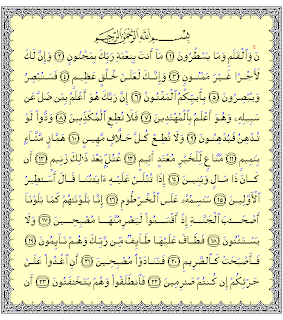 بِسْمِ ٱللَّهِ ٱلرَّحْمَٰنِ ٱلرَّحِيمِ
نٓ وَٱلْقَلَمِ وَمَا يَسْطُرُونَ ١ مَآ أَنتَ بِنِعْمَةِ رَبِّكَ بِمَجْنُونٍ ٢ وَإِنَّ لَكَ
لَأَجْرًا غَيْرَ مَمْنُونٍ ٣ وَإِنَّكَ لَعَلَىٰ خُلُقٍ عَظِيمٍ ٤ فَسَتُبْصِرُ
وَيُبْصِرُونَ ٥ بِأَييِّكُمُ ٱلْمَفْتُونُ ٦ إِنَّ رَبَّكَ هُوَ أَعْلَمُ بِمَن ضَلَّ عَن
سَبِيلِهِۦ وَهُوَ أَعْلَمُ بِٱلْمُهْتَدِينَ ٧ فَلَا تُطِعِ ٱلْمُكَذِّبِينَ ٨ وَدُّوا۟ لَوْ
تُدْهِنُ فَيُدْهِنُونَ ٩ وَلَا تُطِعْ كُلَّ حَلَّافٍ مَّهِينٍ ١٠ هَمَّازٍ مَّشَّآءٍۭ
بِنَمِيمٍ ١١ مَّنَّاعٍ لِّلْخَيْرِ مُعْتَدٍ أَثِيمٍ ١٢ عُتُلٍّۭ بَعْدَ ذَٰلِكَ زَنِيمٍ ١٣ أَن
كَانَ ذَا مَالٍ وَبَنِينَ ١٤ إِذَا تُتْلَىٰ عَلَيْهِ ءَايَٰتُنَا قَالَ أَسَٰطِيرُ
ٱلْأَوَّلِينَ ١٥ سَنَسِمُهُۥ عَلَى ٱلْخُرْطُومِ ١٦ إِنَّا بَلَوْنَٰهُمْ كَمَا بَلَوْنَآ
أَصْحَٰبَ ٱلْجَنَّةِ إِذْ أَقْسَمُوا۟ لَيَصْرِمُنَّهَا مُصْبِحِينَ ١٧ وَلَا
يَسْتَثْنُونَ ١٨ فَطَافَ عَلَيْهَا طَآئِفٌ مِّن رَّبِّكَ وَهُمْ نَآئِمُونَ ١٩
فَأَصْبَحَتْ كَٱلصَّرِيمِ ٢٠ فَتَنَادَوْا۟ مُصْبِحِينَ ٢١ أَنِ ٱغْدُوا۟ عَلَىٰ
حَرْثِكُمْ إِن كُنتُمْ صَٰرِمِينَ ٢٢ فَٱنطَلَقُوا۟ وَهُمْ يَتَخَٰفَتُونَ ٢٣ أَن